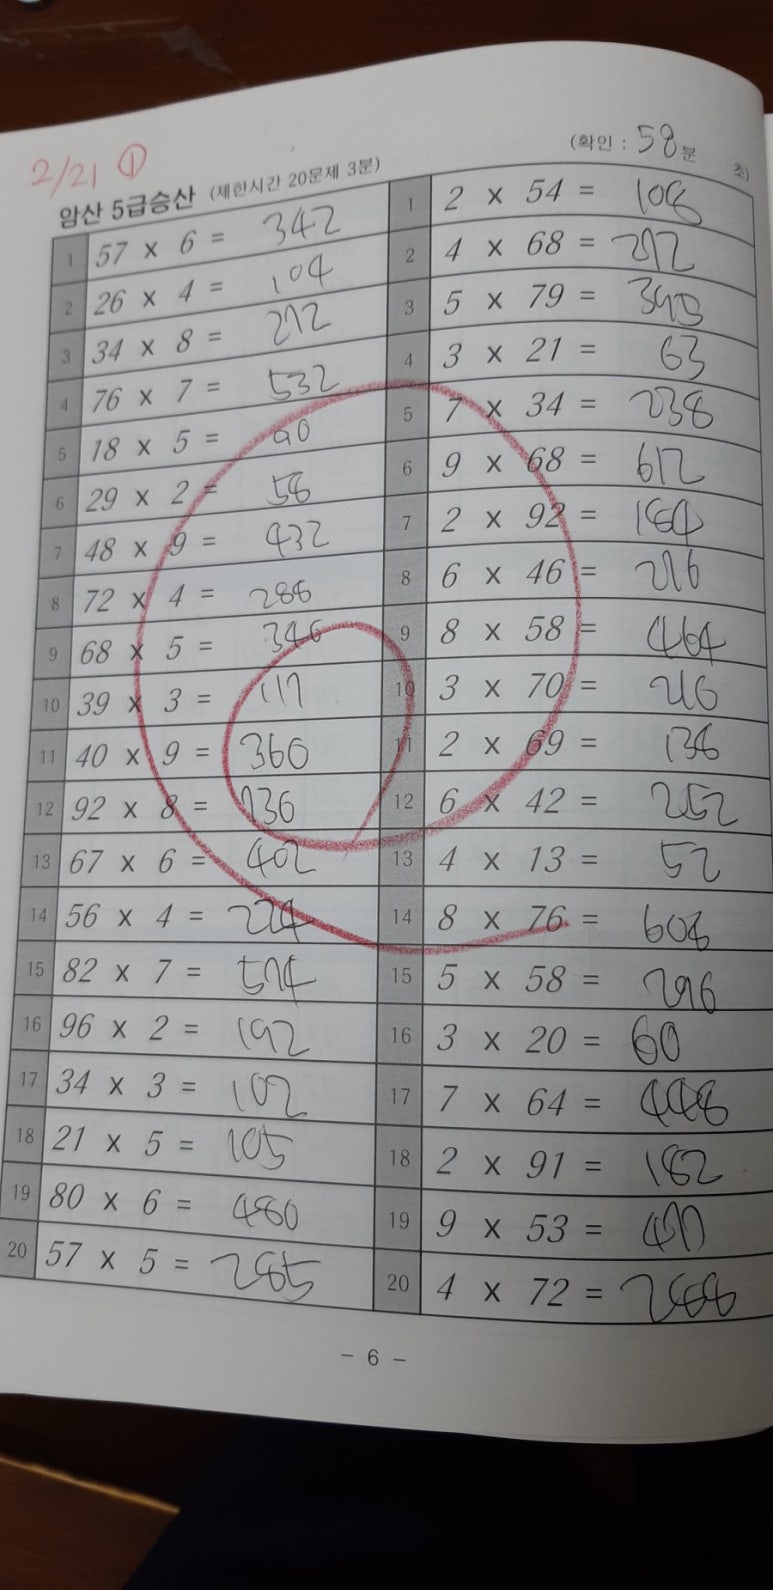 2/21 ①
(확인 : 58분 초)
암산 5급승산 (제한시간 20문제 3분)
1 57 x 6 = 342
2 26 x 4 = 104
3 34 x 8 = 272
4 76 x 7 = 532
5 18 x 5 = 90
6 29 x 2 = 58
7 48 x 9 = 432
8 72 x 4 = 288
9 68 x 5 = 346
10 39 x 3 = 117
11 40 x 9 = 360
12 92 x 8 = 736
13 67 x 6 = 402
14 56 x 4 = 224
15 82 x 7 = 574
16 96 x 2 = 192
17 34 x 3 = 102
18 21 x 5 = 105
19 80 x 6 = 480
20 57 x 5 = 285
1 2 x 54 = 108
2 4 x 68 = 272
3 5 x 79 = 395
4 3 x 21 = 63
5 7 x 34 = 238
6 9 x 68 = 612
7 2 x 92 = 184
8 6 x 46 = 276
9 8 x 58 = 464
10 3 x 70 = 210
11 2 x 69 = 138
12 6 x 42 = 252
13 4 x 13 = 52
14 8 x 76 = 608
15 5 x 58 = 296
16 3 x 20 = 60
17 7 x 64 = 448
18 2 x 91 = 182
19 9 x 53 = 477
20 4 x 72 = 288
- 6 -